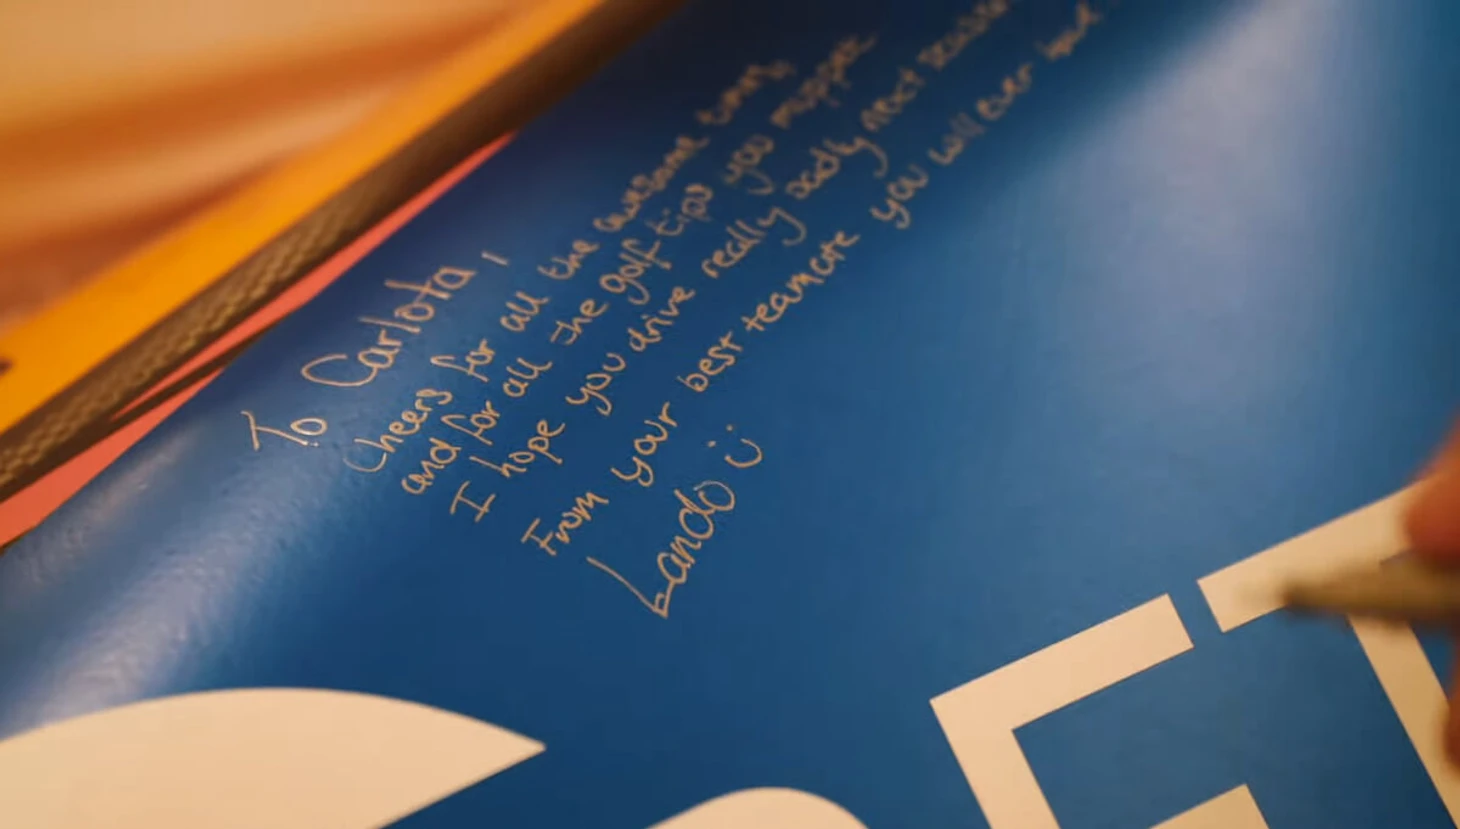 To Carlota,
Cheers for all the awesome times
and for all the golf tips you muppet
I hope you drive really badly next season
From your best teamate you will ever have
Lando :)